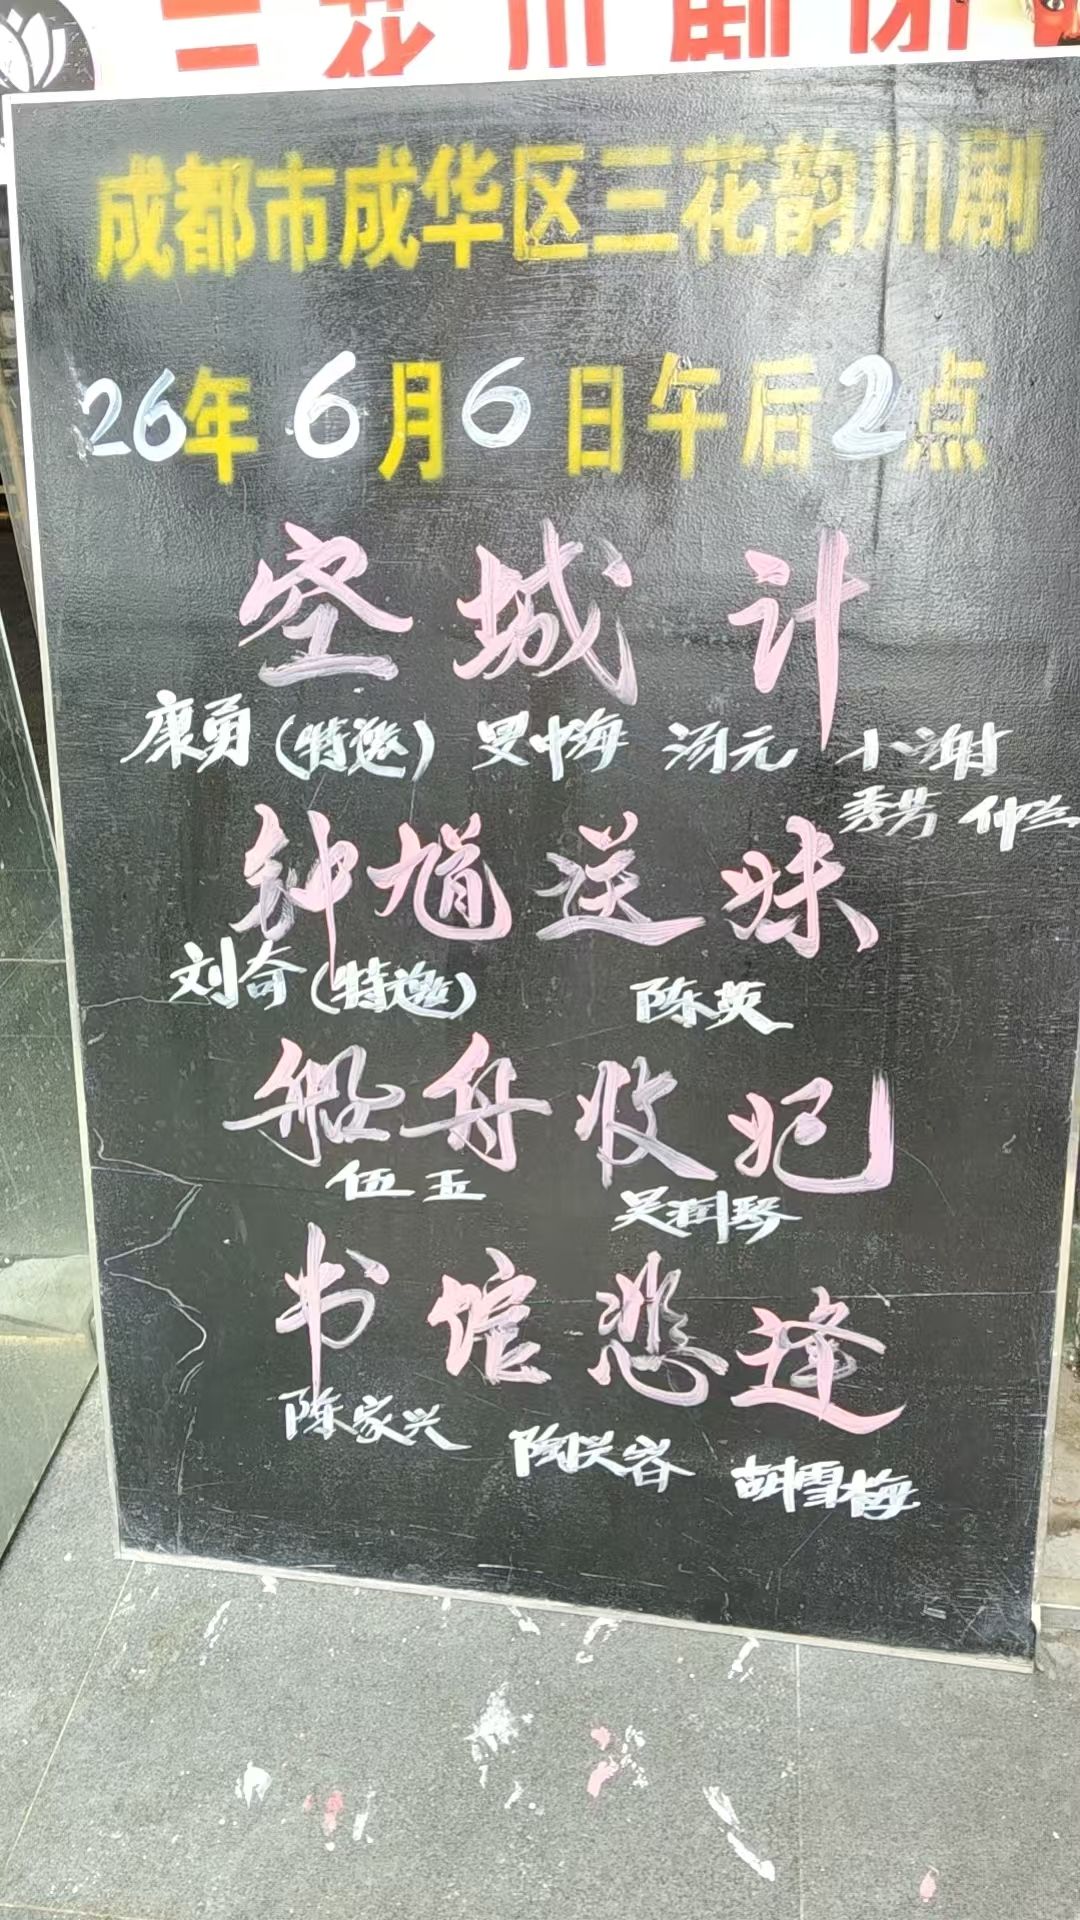 三花川剧团
成都市成华区三花韵川剧
26年6月6日午后2点
空城计
康勇(特邀) 中海 汤元 小谢
秀芳 仲兰
钟馗送妹
刘奇(特邀) 陈英
船舟收妃
伍玉 吴润琴
书馆悲逢
陈家兴 陶兴容 胡雪梅